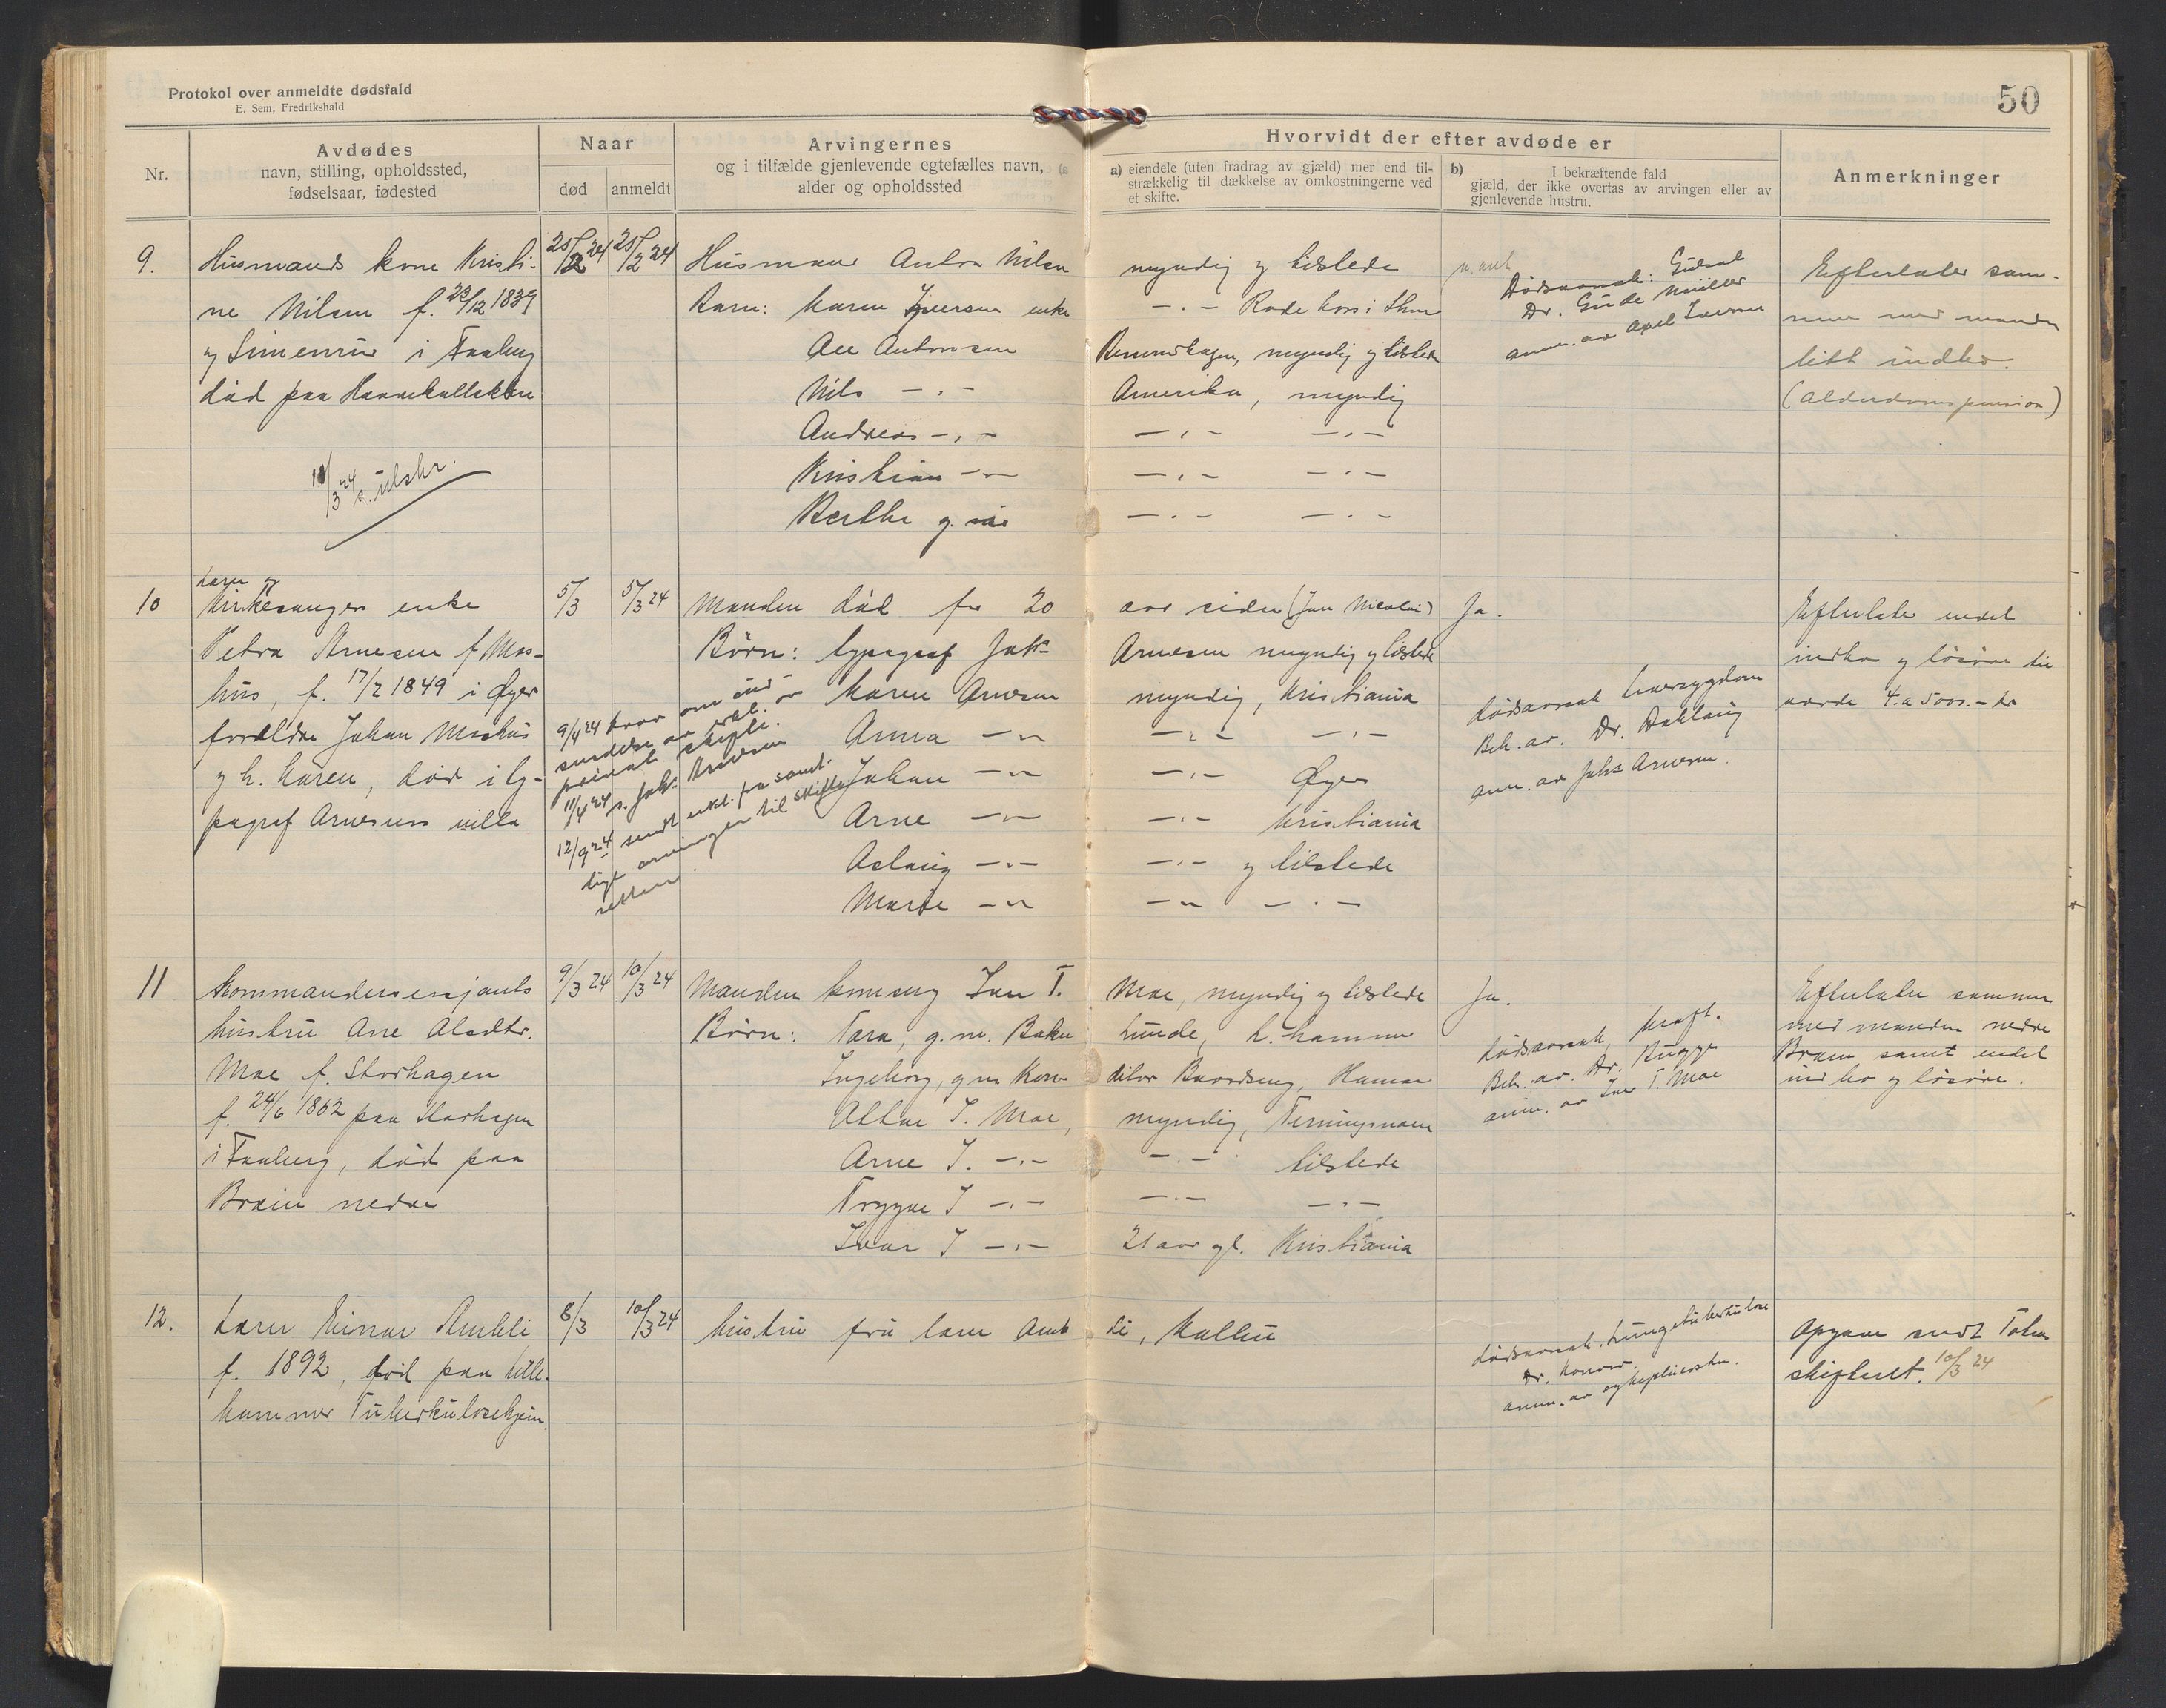 Protokol over anmeldte dødsfald
E. Sem, Fredrikshald
50
Nr.
Avdødes
navn, stilling, opholdssted,
fødselsaar, fødested
Naar
død
anmeldt
Arvingernes
og i tilfælde gjenlevende egtefælles navn,
alder og opholdssted
Hvorvidt der efter avdøde er
a) eiendele (uten fradrag av gjæld) mer end til-
strækkelig til dækkelse av omkostningerne ved
et skifte.
b) I bekræftende fald
gjæld, der ikke overtas av arvingen eller av
gjenlevende hustru.
Anmerkninger
9.
Husmands kone Kristi-
ne Nilsen f. 23/12 1839
i Faaberg
død paa
25/2 24
25/2 24
11/3 24 s. utskr.
Husmand Anton Nilsen
Barn: Karen Iversen enke
Antonsen
Nils -"-
Andreas -"-
Kristian -"-
Berthe g.
myndig og tilstede
-"- Røde kors i
myndig og tilstede
Amerika, myndig
-"- -"-
-"- -"-
-"- -"-
Dødsaarsak:
Dr. Gude Müller
anm. av Axel Iversen
Efterlater sam-
men med manden
litt indbo.
(Alderdoms pension)
10
Lærer og
Kirkesanger enke
Petra Arnesen f. Mos-
hus, f. 17/2 1849 i Øyer
forældre Johan Moshus
og h. Karen, død i ty-
pograf Arnesens villa
5/3
5/3 24
9/4 24 krav om ind-
sendelse av erkl. om
privat skifte.
11/4 24 s. Jak. Arnesen
12/9 24 sendt erkl. fra samt-
lige arvinger til skifte-
retten
Manden død for 20
Børn: typograf Jak
Karen Arnesen
Anna -"-
Johan -"-
Arne -"-
Aslaug -"-
Marie -"-
aar siden (Jan Nicolai)
Arnesen myndig og tilstede
myndig, Kristiania
-"- -"-
-"- Øyer
-"- Kristiania
-"- og tilstede
-"- -"-
Ja.
Dødsaarsak
Beh. av. Dr.
anm. av Jak. Arnesen.
Efterlater endel
indbo og løsøre til
værdi 4 a 5000.- kr
11
Kommandersersjants
hustru Ane Olsdtr.
Moe f. Storhagen
f. 24/6 1862 paa Storhagen
i Faaberg, død paa
Brain nedre
9/3 24
10/3 24
Manden komserg Ivar T.
Børn: Tora, g.m. Baker
Ingeborg, g m Kon-
I. Moe,
Arne I. -"-
Trygve I -"-
Ivar I -"-
Moe, myndig og tilstede
Lunde, L.hammer
ditor Baardseng, Hamar
myndig, Terningmoen
-"- tilstede
-"- -"-
21 aar gl. Kristiania
Ja.
Dødsaarsak, kræft.
Beh. av. Dr. Bugge
anm. av Ivar T. Moe
Efterlater sammen
med manden nedre
Brain samt endel
indbo og løsøre.
12.
Lærer Einar Amlili
f. 1892, død paa Lille-
hammer Tuberkulosehjem.
8/3
10/3 24
hustru fru lærer Aml
li, Kolbu
Dødsaarsak. Lungetuberkulose
Dr.
anm. av
Opgave sendt Toten
skifteret. 10/3 24